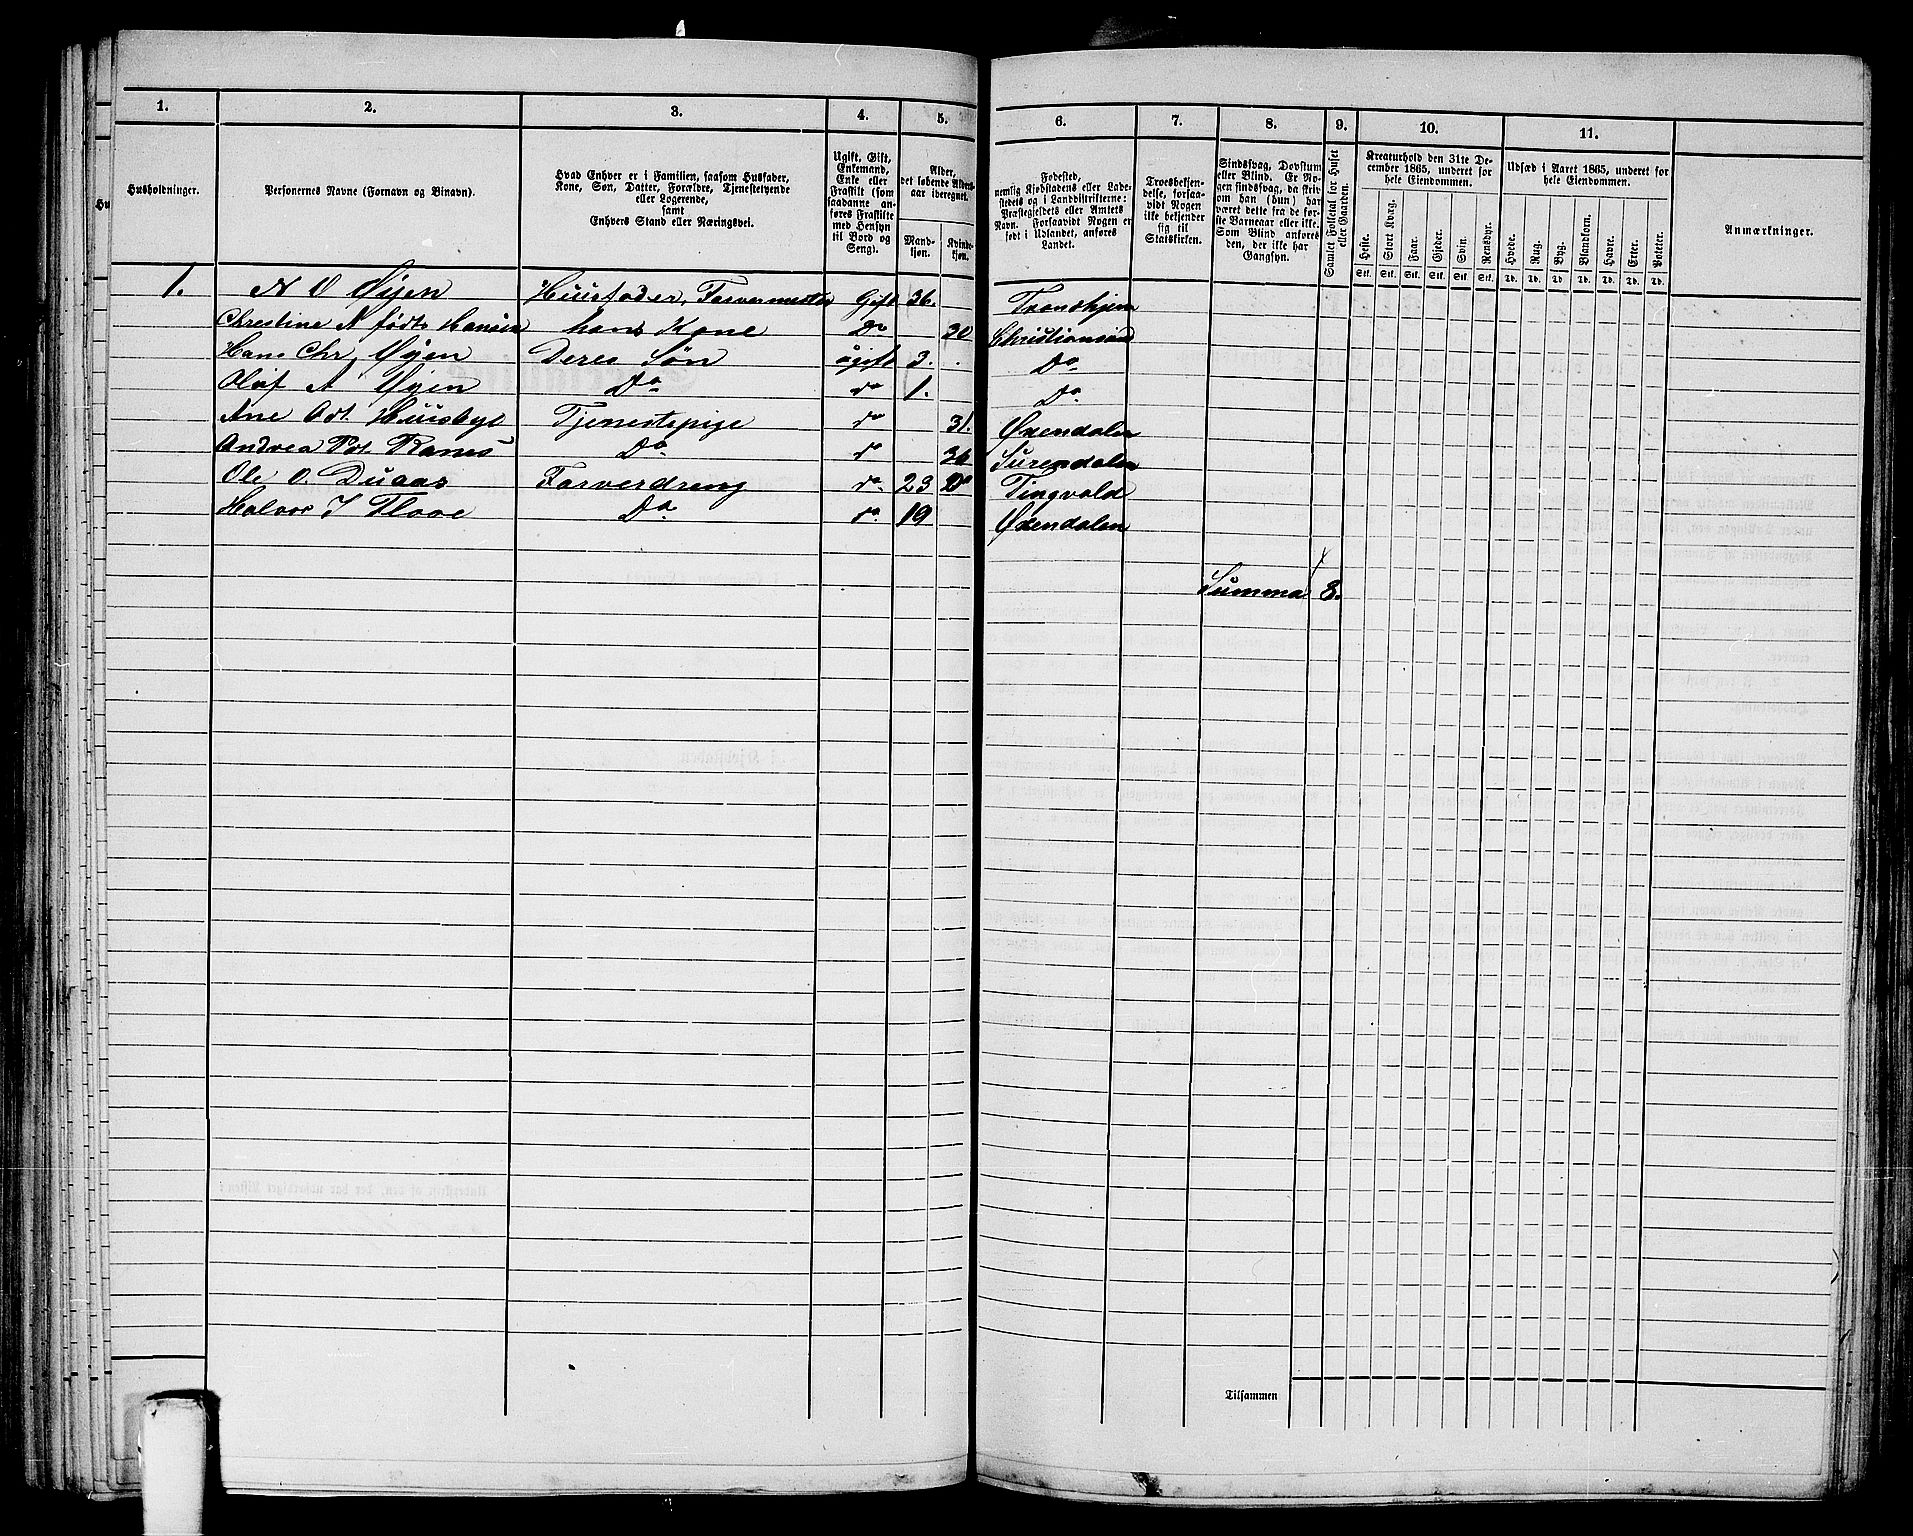 1. 2. 3. 4. 5. 6. 7. 8. 9. 10. 11.
Husholdninger.
Personernes Navne (Fornavn og Binavn).
Hvad Enhver er i Familien, saasom Husfader,
Kone, Søn, Datter, Forældre, Tjenestetyende
eller Logerende,
samt
Enhvers Stand eller Næringsvei.
Ugift, Gift,
Enkemand,
Enke eller
Fraskilt (som
saadanne an-
føres Fraskilte
med Hensyn
til Bord og
Seng).
Alder,
det løbende Alders-
aar iberegnet.
Mand-
kjøn.
Kvinde-
kjøn.
Fødested,
nemlig Kjøbstadens eller Lade-
stedets og i Landdistrikterne:
Præstegjeldets eller Amtets
Navn. Forsaavidt Nogen er
født i Udlandet, anføres
Landet.
Troesbekjen-
delse, forsaa-
vidt Nogen
ikke bekjender
sig til
Statskirken.
Sindssvag, Døvstum
eller Blind. Er No-
gen sindssvag, da skriv
om han (hun) har
været dette fra de før-
ste Barneaar eller ikke.
Som Blind anføres
den, der ikke har
Gangsyn.
Samlet Folketal for Huset
eller Gaarden.
Kreaturhold den 31te De-
cember 1865, underet for
hele Eiendommen.
Heste. Stort Kvæg. Faar. Gjeder. Svin. Rensdyr.
Stk. Stk. Stk. Stk. Stk. Stk.
Udsæd i Aaret 1865, underet for
hele Eiendommen.
Hvede. Rug. Byg. Blandkorn. Havre. Erter. Poteter.
Td. Td. Td. Td. Td. Td. Td.
Anmærkninger.
1. N O Øyen Huusfader, Farvermester Gift 36. Trondhjem
Chrestine N født Hansen hans Kone Do 30 Christiansund
Hans Chr. Øyen Deres Søn ugift 3. Do
Olaf N Øyen Do do 1. Do
Ane Odt. Huusbye Tjenestepige do 31. Øxendalen
Andrea Pdt. Ranes Do do 36 Surendalen
Ole O. Duaas Farverdreng do 23 Do Tingvold
Halvor J Flove Do do 19 Øxendalen
Summa 8.
Tilsammen